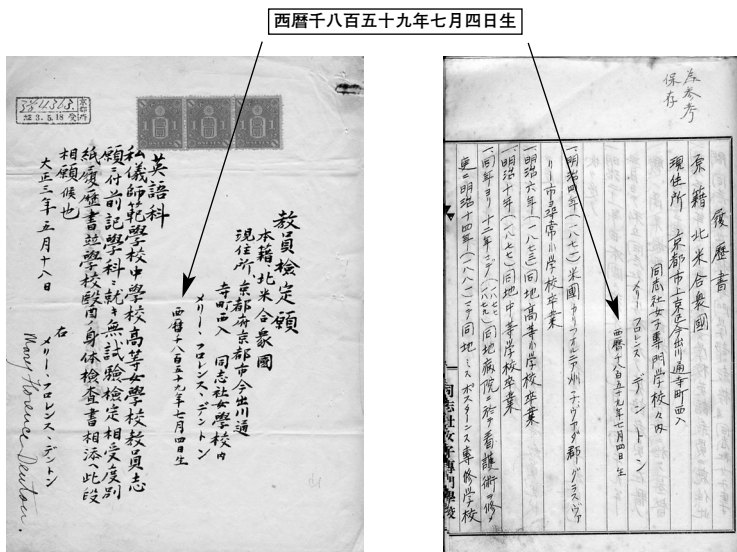 西暦千八百五十九年七月四日生
教員検定願
本籍 北米合衆國
現住所 京都府京都市今出川通
寺町西入 同志社女學校内
メリー・フロレンス・デントン
西暦千八百五十九年七月四日生
英語科
私儀師範學校中學校高等女學校教員志
願ニ付前記學科ニ就キ無試験検定相受度別
紙履歴書並學校醫ノ身体検査書相添ヘ此段
相願候也
大正三年五月十八日
右
メリー・フロレンス・デントン
Mary Florence Denton.
3.5.18
為参考
保存
履歴書
原籍 北米合衆國
現住所 京都市上京区今出川通寺町西入
同志社女子専門學校々内
メリー フロレンス デントン
西暦千八百五十九年七月四日生
一、明治四年(一八七一)米國カリフォルニア州 子ヴァダ郡 グラスヴァ
リー市 尋常小學校卒業
一、明治六年(一八七三)同地高等小學校卒業
一、明治十年(一八七七)同地中等學校卒業
一、同年ヨリ十二年マデ(一八七七 一八七九)同地病院ニ於テ看護術ヲ修メ
更ニ明治十四年(一八八一)マデ同地ミスポスターンス専修学校
同志社女子専門學校